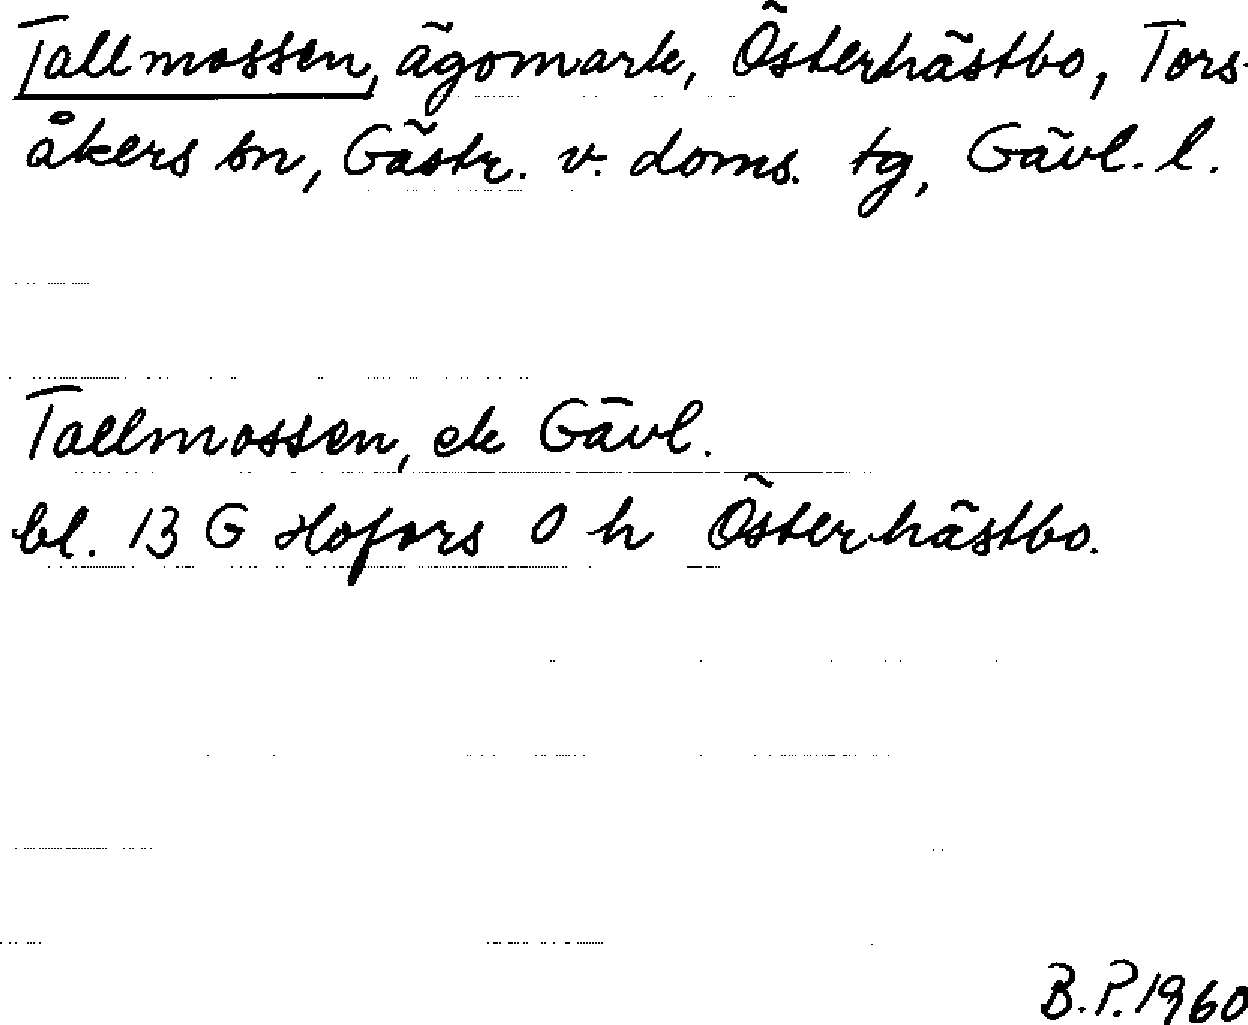 Tallmossen, ägomark, Österhästbo, Tors-
åkers sn, Gästr. v. doms. tg, Gävl. l.
Tallmossen, ek Gävl.
bl. 13 G Hofors 0 h Österhästbo.
B.P. 1960